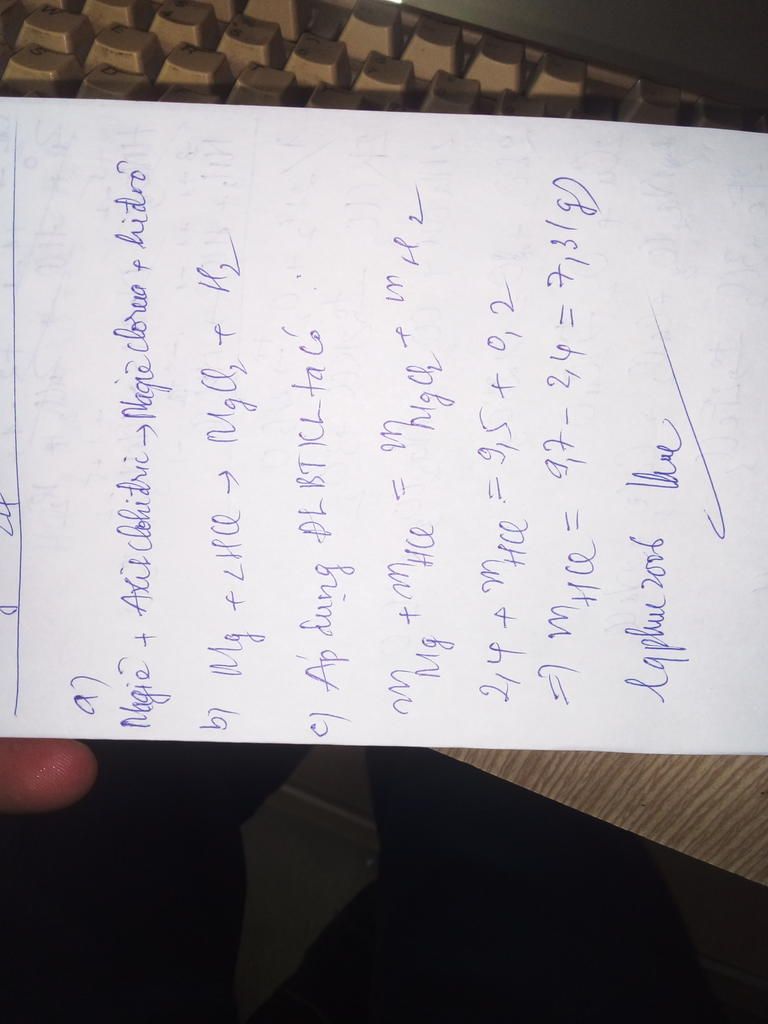 a)
Magiê + Axit Clohiđric → Magiê clorua + hiđrô
b) Mg + 2HCl → MgCl2 + H2
c) Áp dụng ĐLBTKL ta có:
mMg + mHCl = mMgCl2 + mH2
2,4 + mHCl = 9,5 + 0,2
=> mHCl = 9,7 - 2,4 = 7,3(g)
lqphuc2006